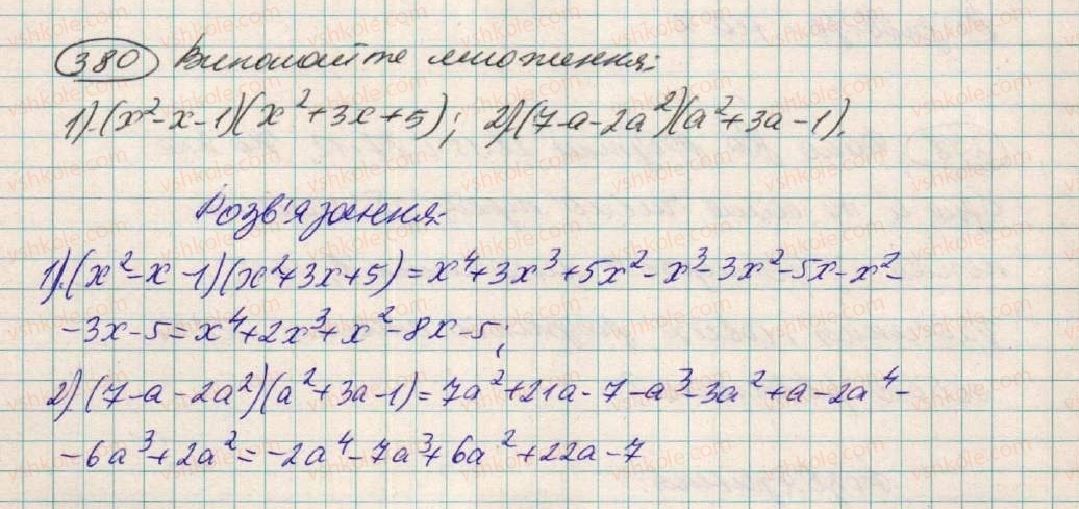 380 Виконайте множення:
1) (x²-x-1)(x²+3x+5); 2) (7-a-2a²)(a²+3a-1).
Розв'язання:
1) (x²-x-1)(x²+3x+5)=x⁴+3x³+5x²-x³-3x²-5x-x²-
-3x-5=x⁴+2x³+x²-8x-5;
2) (7-a-2a²)(a²+3a-1)=7a²+21a-7-a³-3a²+a-2a⁴-
-6a³+2a²=-2a⁴-7a³+6a²+22a-7